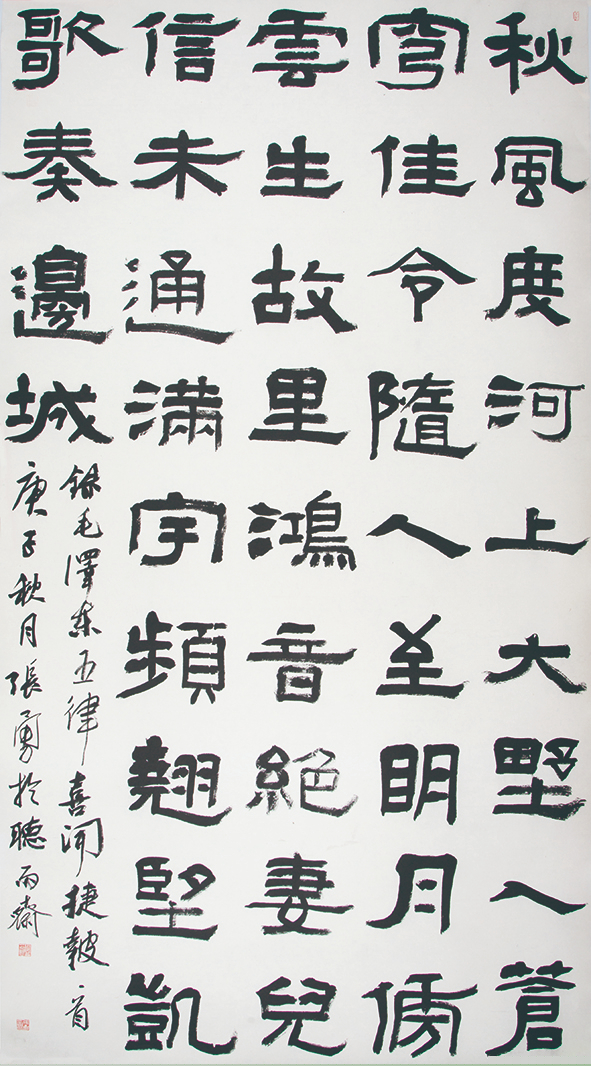 秋風度河上大野入蒼
穹佳令隨人至明月傍
雲生故里鴻音絕妻兒
信未通滿宇頻翹望凱
歌奏邊城
錄毛澤東五律喜聞捷報一首
庚子秋月張勇於聽雨齋